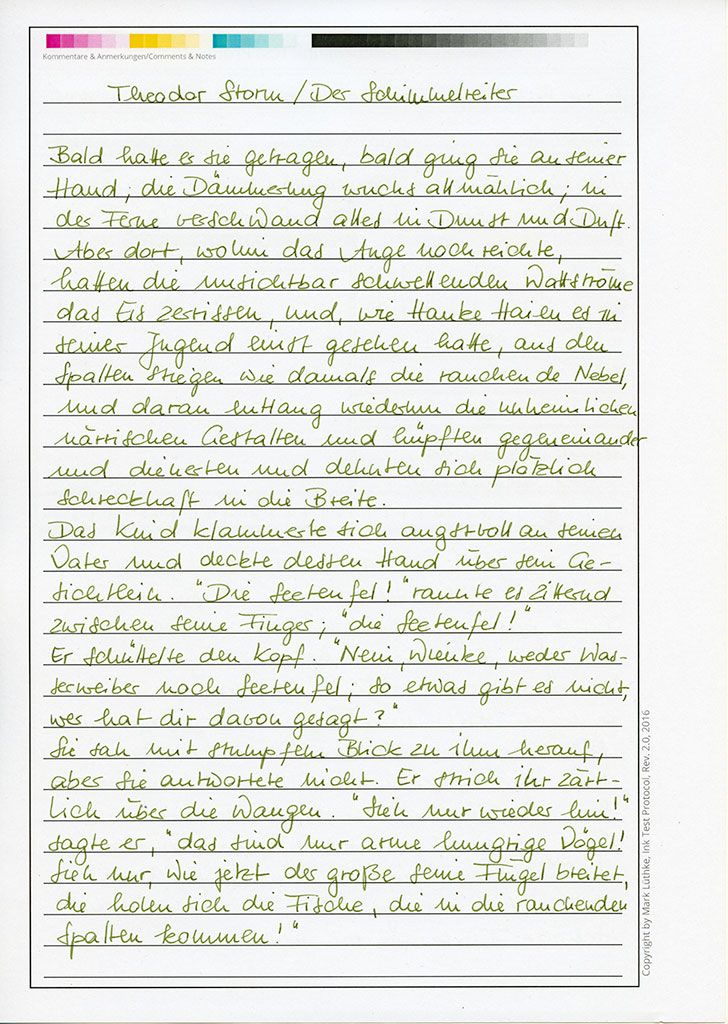 Kommentare & Anmerkungen/Comments & Notes
Theodor Storm / Der Schimmelreiter
Bald hatte es sie getragen, bald ging sie an seiner
Hand; die Dämmerung wuchs allmählich; in
der Ferne verschwand alles in Dunst und Duft.
Aber dort, wohin das Auge noch reichte,
hatten die unsichtbar schwellenden Wattströme
das Eis zerrissen, und, wie Hauke Haien es in
seiner Jugend einst gesehen hatte, aus den
Spalten stiegen wie damals die rauchende Nebel,
und daran entlang wiederum die unheimlichen
närrischen Gestalten und hüpften gegeneinander
und dienerten und dehnten sich plötzlich
schreckhaft in die Breite.
Das Kind klammerte sich angstvoll an seinen
Vater und deckte dessen Hand über sein Ge-
sichtlein. "Die Seeteufel!" raunte es zitternd
zwischen seine Finger; "die Seeteufel!"
Er schüttelte den Kopf. "Nein, Wienke, weder Was-
serweiber noch Seeteufel; so etwas gibt es nicht,
wer hat dir davon gesagt?"
Sie sah mit stumpfem Blick zu ihm herauf,
aber sie antwortete nicht. Er strich ihr zärt-
lich über die Wangen. "Sieh nur wieder hin!"
sagte er, "das sind nur arme hungrige Vögel!
Sieh nur, wie jetzt der große seine Flügel breitet,
die holen sich die Fische, die in die rauchenden
Spalten kommen!"
Copyright by Mark Lüthke, Ink Test Protocol, Rev. 2.0, 2016